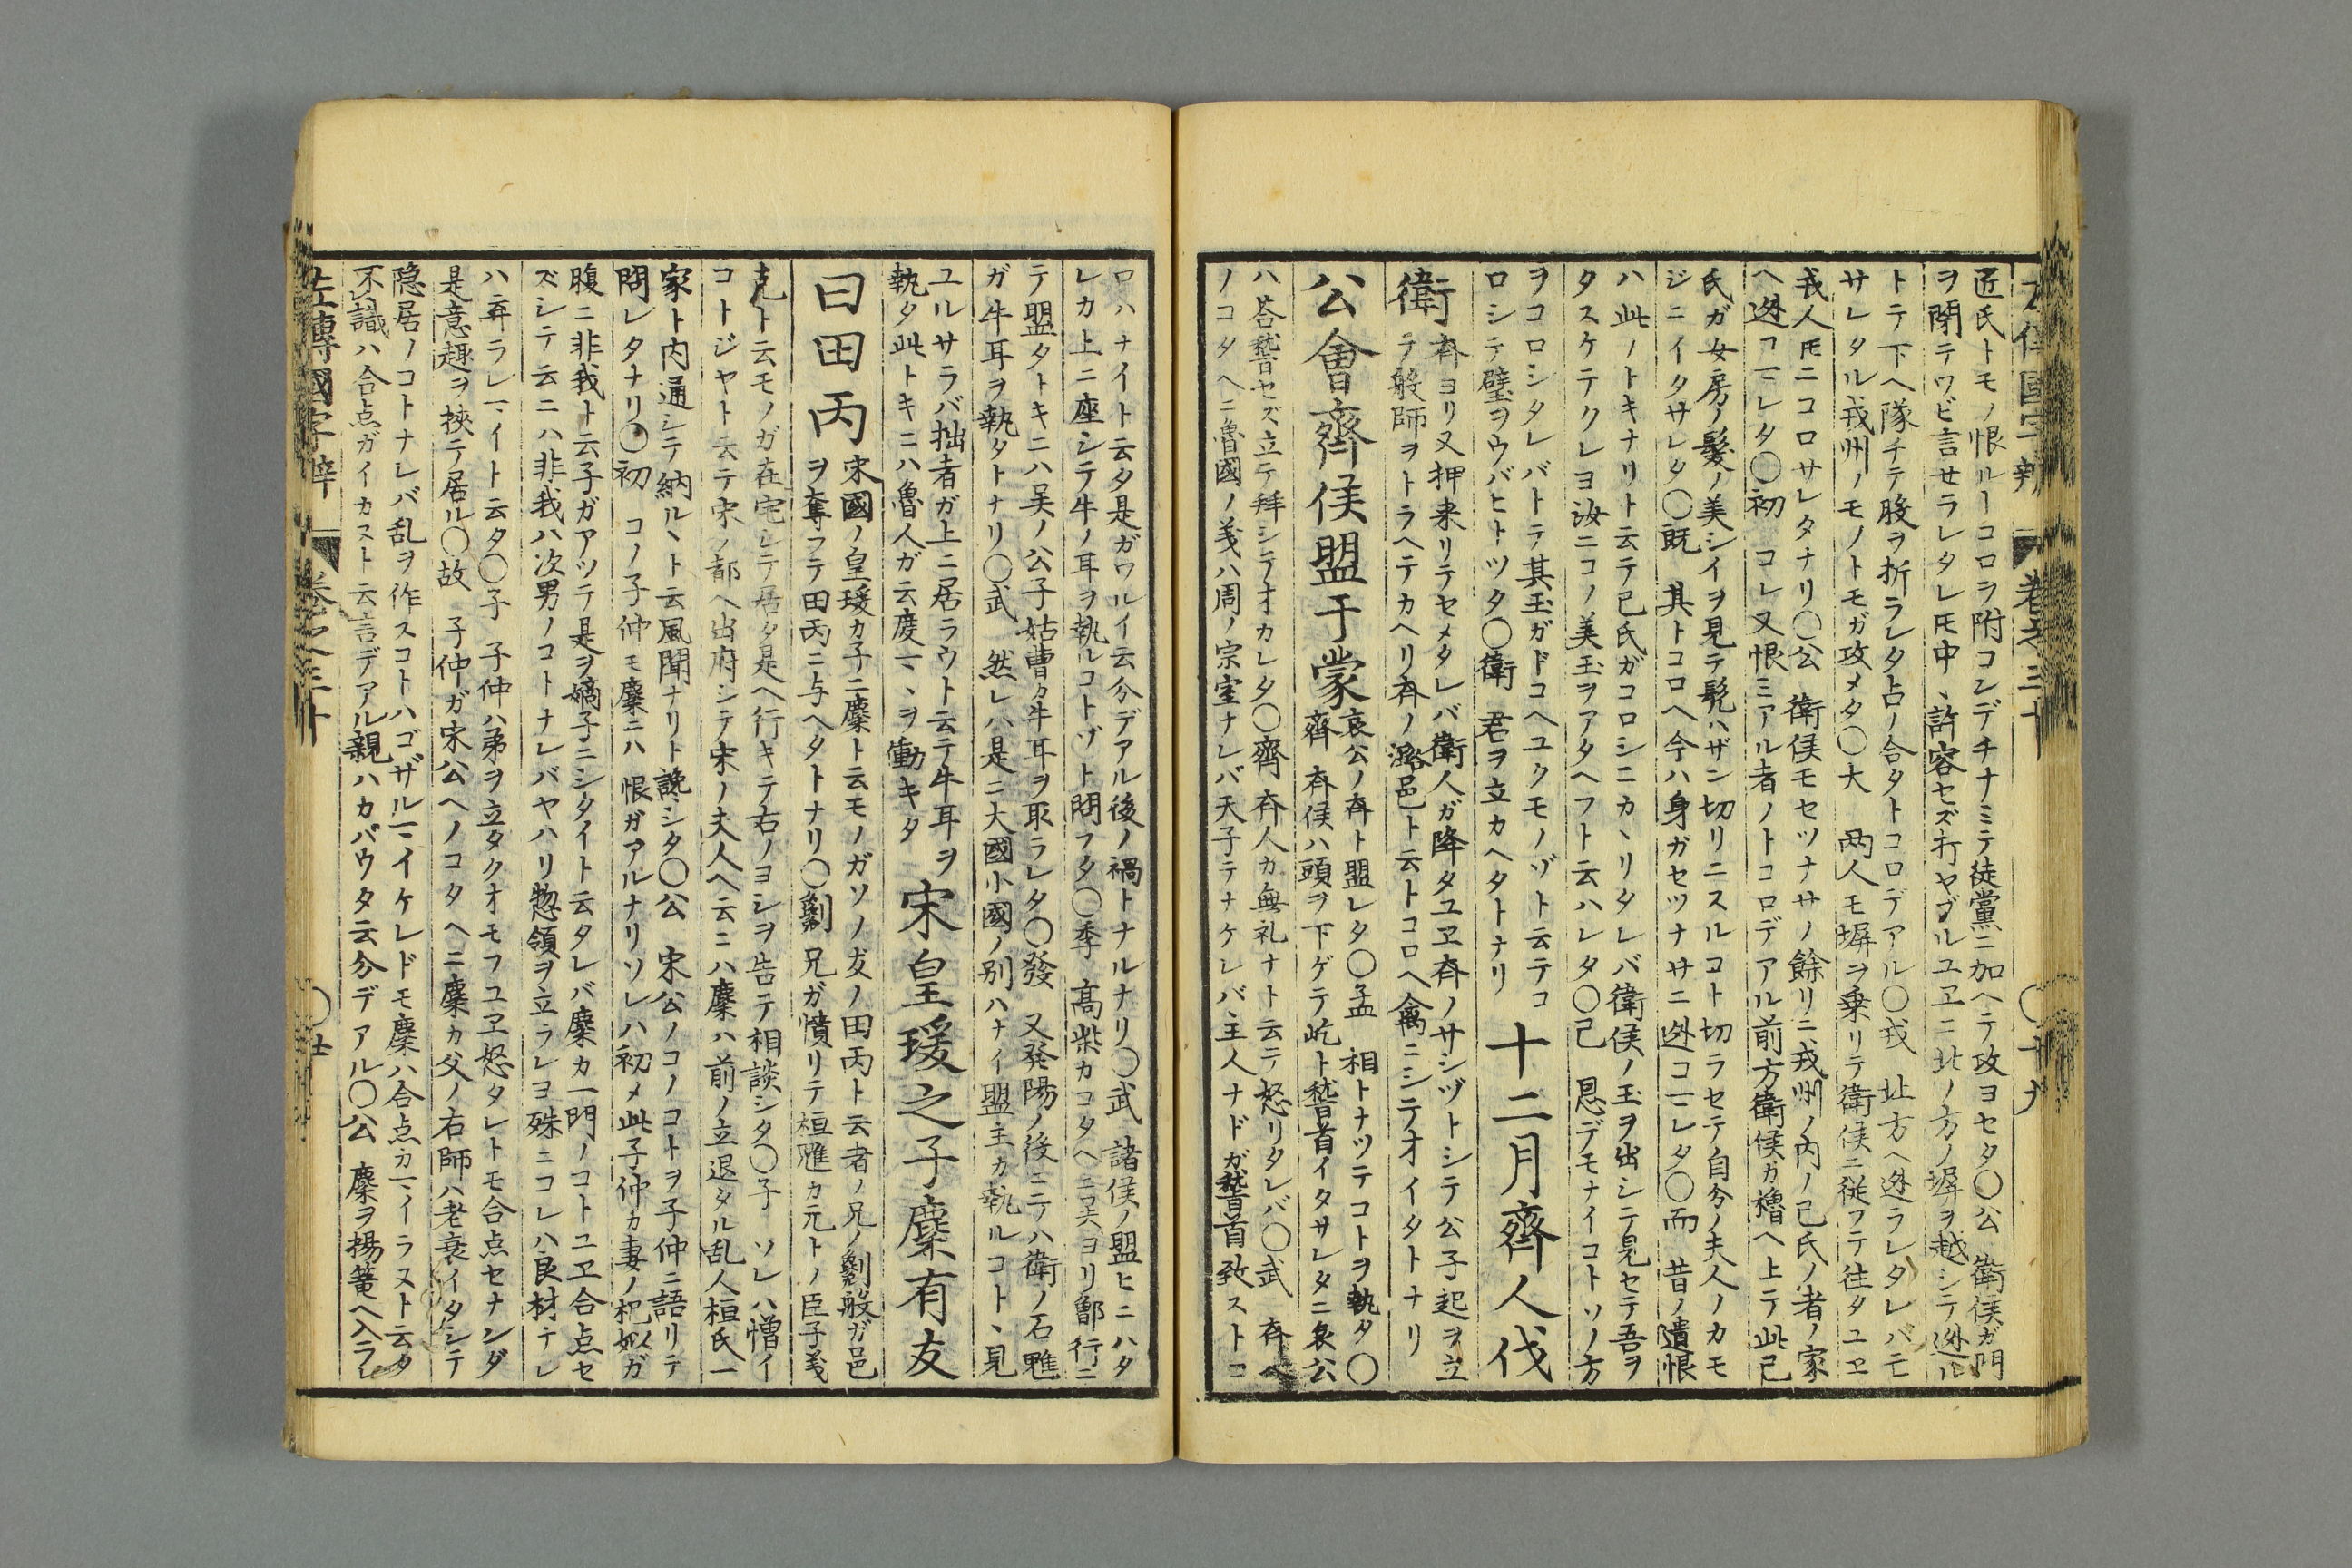 左傳國字辯 卷之三十 〇十九
匠氏トモノ恨ルヿコロヲ附コンデチナミテ徒黨ニ加ヘテ攻ヨセタ〇公 衛侯ガ門
ヲ閉テワビ言セラレタレ𪜈中、許容セズ打ヤブルユヱニ北ノ方ノ墀ヲ越シテ迯ル
トテ下ヘ隊チテ股ヲ折ラレタ占ノ合タトコロデアル〇戎 北方ヘ迯ラレタレバモ
サレタル戎州ノモノトモガ攻メタ〇大 両人モ墀ヲ乗リテ衛侯ニ従フテ往タユヱ
戎人𪜈ニコロサレタナリ〇公 衛侯モセツナサノ餘リニ戎州ノ内ノ己氏ノ者ノ家
ヘ迯コマレタ〇初 コレ又恨ミアル者ノトコロデアル前方衛侯カ櫓ヘ上テ此己
氏ガ女房ノ髪ノ美シイヲ見テ髡ハザン切リニスルコト切ラセテ自分ノ夫人ノカモ
ジニイタサレタ〇既 其トコロヘ今ハ身ガセツナサニ迯コマレタ〇而 昔ノ遺恨
ハ此ノトキナリト云テ己氏ガコロシニカヽリタレバ衛侯ノ玉ヲ出シテ見セテ吾ヲ
タスケテクレヨ汝ニコノ美玉ヲアタヘフト云ハレタ〇己 恩デモナイコトソノ方
ヲコロシタレバトテ其玉ガドコヘユクモノゾト云テコ
ロシテ璧ヲウバヒトツタ〇衛 君ヲ立カヘタトナリ
十二月齊人伐
衛 斉ヨリ又押来リテセメタレバ衛人ガ降タユヱ斉ノサシヅトシテ公子起ヲ立
テ般師ヲトラヘテカヘリ斉ノ潞邑ト云トコロヘ禽ニシテオイタトナリ
公會齊侯盟于蒙 哀公ノ斉ト盟レタ〇孟 相トナツテコトヲ執タ〇
齊 斉侯ハ頭ヲ下ゲテ屹ト䭬首イタサレタニ哀公
ハ荅䭬セズ立テ拜シテオカレタ〇齊 斉人カ無礼ナト云テ怒リタレバ〇武 斉ヘ
ノコタヘニ魯國ノ義ハ周ノ宗室ナレバ天子テナケレバ主人ナドガ䭬首致ストコ
ロハナイト云タ是ガワルイ云分デアル後ノ禍トナルナリ〇武 諸侯ノ盟ヒニハタ
レカ上ニ座シテ牛ノ耳ヲ執ルコトゾト問フタ〇季 髙柴カコタヘニ呉ヨリ鄫行ニ
テ盟タトキニハ吴ノ公子姑曹カ牛耳ヲ取ラレタ〇發 又発陽ノ後ニテハ衛ノ石魋
ガ牛耳ヲ執タトナリ〇武 然レハ是ニ大國小國ノ别ハナイ盟主カ執ルコトヽ見
ユルサラバ拙者ガ上ニ居ラウト云テ牛耳ヲ
執タ此トキニハ魯人ガ云度マヽヲ働キタ
宋皇瑗之子麇有友
曰田丙 宋國ノ皇瑗カ子ニ麇ト云モノガソノ友ノ田丙ト云者ノ兄ノ劖般ガ邑
ヲ奪フテ田丙ニ与ヘタトナリ〇劖 兄ガ憤リテ桓雁カ元トノ臣子義
克ト云モノガ在宅シテ居タ是ヘ行キテ右ノヨシヲ告テ相談シタ〇子 ソレハ憎イ
コトジヤト云テ宋ノ都ヘ出府シテ宋ノ夫人ヘ云ニハ麇ハ前ノ立退タル乱人桓氏一
家ト内通シテ納ルヽト云風聞ナリト讒シタ〇公 宋公ノコノコトヲ子仲ニ語リテ
問レタナリ〇初 コノ子仲モ麇ニハ恨ガアルナリソレハ初メ此子仲カ妻ノ杞姒ガ
腹ニ非我ト云子ガアツテ是ヲ嫡子ニシタイト云タレバ麇カ一門ノコトユヱ合点セ
ズシテ云ニハ非我ハ次男ノコトナレバヤハリ惣領ヲ立ラレヨ殊ニコレハ良材テレ
ハ弃ラレマイト云タ〇子 子仲ハ弟ヲ立タクオモフユヱ怒タレトモ合点セナンダ
是意趣ヲ挾テ居ル〇故 子仲ガ宋公ヘノコタヘニ麇カ父ノ右師ハ老衰イタシテ
隐居ノコトナレバ乱ヲ作スコトハゴザルマイケレドモ麇ハ合点ガマイラヌト云タ
不識ハ合点ガイカヌト云言デアル親ハカバウタ云分デアル〇公 麇ヲ揚篭ヘ入ラレ
左傳國字辯 卷之三十 〇廿